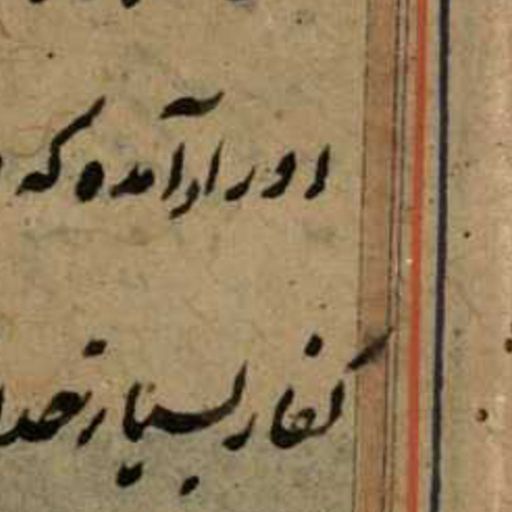 اوراد آمده که
کفار بسیار تصد